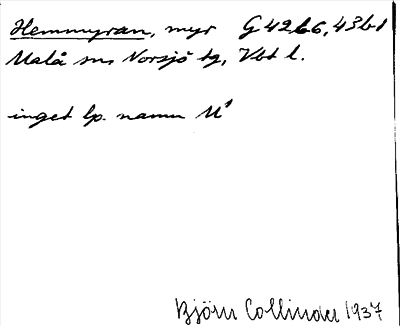 Hemmyran, myr G 42 b 6, 43 b 1
Malå sn, Norsjö tg, Vbt l.
inget lp. namn M¹
Björn Collinder 1937